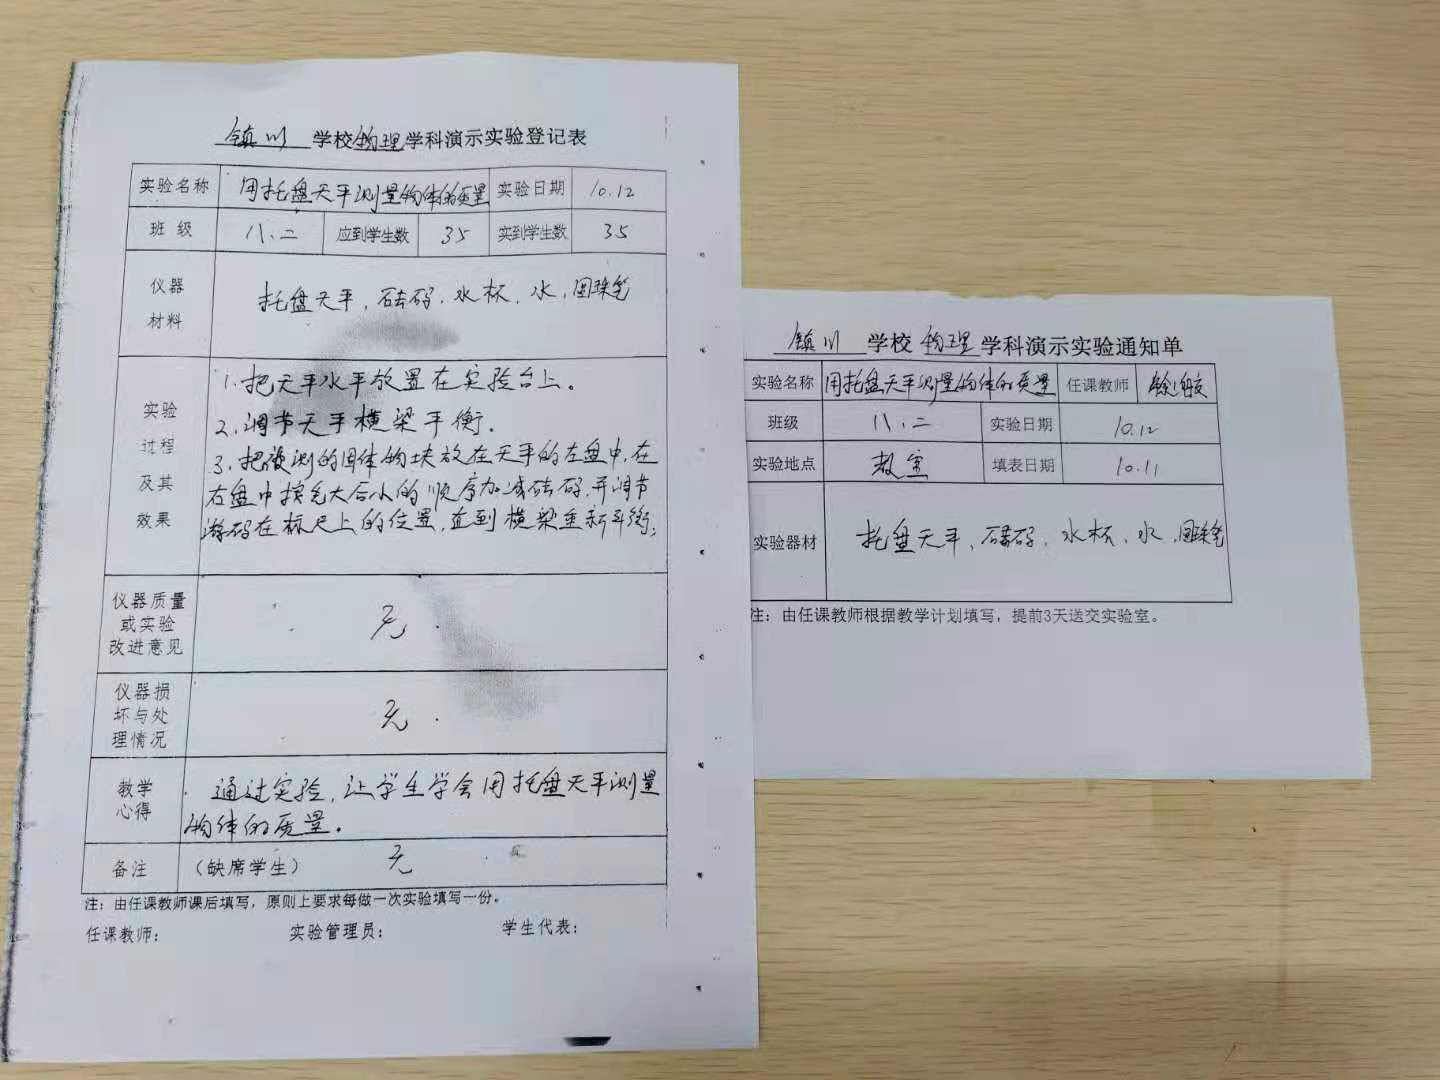 镇川 学校物理学科演示实验登记表
实验名称 用托盘天平测量物体的质量 实验日期 10.12
班 级 八、二 应到学生数 35 实到学生数 35
仪器
材料
托盘天平、砝码、水杯、水、圆珠笔
实验
过程
及其
效果
1、把天平水平放置在实验台上。
2、调节天平横梁平衡。
3、把被测的固体物块放在天平的左盘中,在
右盘中按先大后小的顺序加减砝码,并调节
游码在标尺上的位置,直到横梁重新平衡;
仪器质量
或实验
改进意见
无
仪器损
坏与处
理情况
无.
教学
心得
通过实验,让学生学会用托盘天平测量
物体的质量。
备注 (缺席学生) 无
注：由任课教师课后填写，原则上要求每做一次实验填写一份。
任课教师： 实验管理员： 学生代表：
镇川 学校 物理 学科演示实验通知单
实验名称 用托盘天平测量物体的质量 任课教师
班级 八、二 实验日期 10.12
实验地点 教室 填表日期 10.11
实验器材 托盘天平、砝码、水杯、水、圆珠笔
注：由任课教师根据教学计划填写，提前3天送交实验室。